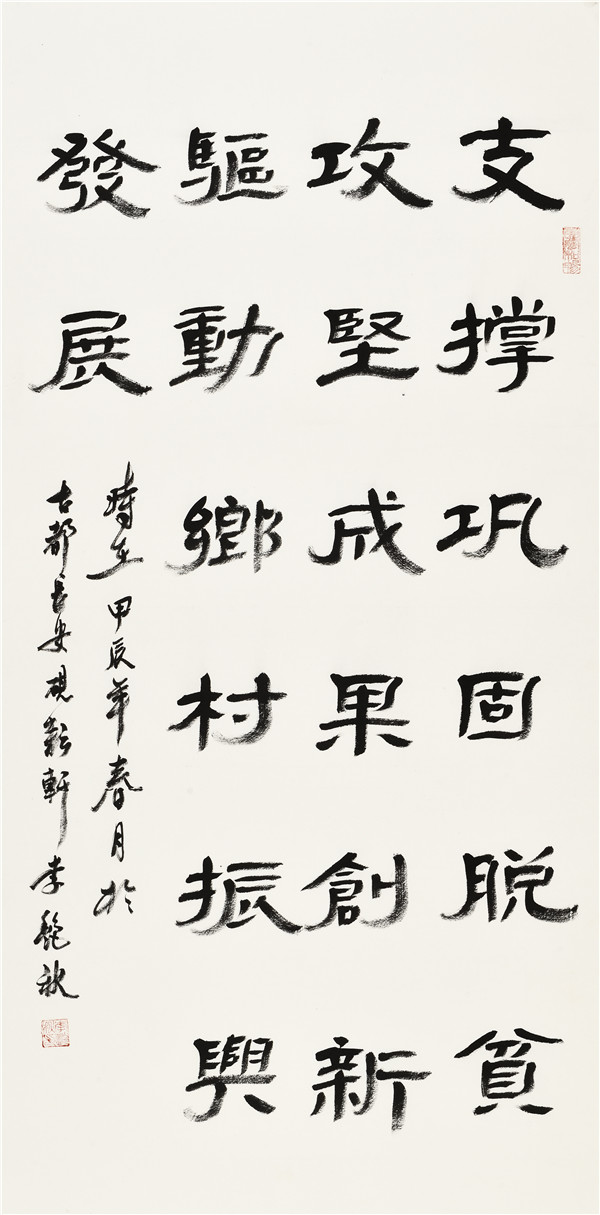 支撐巩固脫貧
攻堅成果創新
驅動鄉村振興
發展
時在甲辰年春月於
古都長安硯龢軒李艶秋